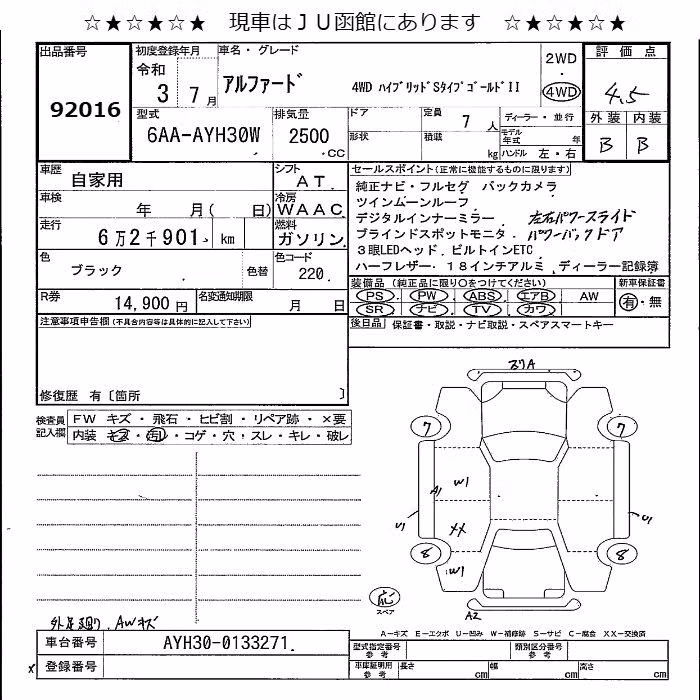 ☆★☆★☆★ 現車はJU函館にあります ☆★☆★☆★
出品番号
92016
初度登録年月
令和
3 7月
車名・グレード
アルファード
4WD ハイブリッドSタイプゴールドII
2WD
・
4WD
評価点
4.5
外装 内装
B B
型式
6AA-AYH30W
排気量
2500
.CC
ドア
定員
7人
形状
積載
kg
ディーラー・並行
モデル年式 年
ハンドル 左・右
車歴
自家用
シフト
AT
車検
年 月( 日)
冷房
WAAC
走行
6万2千901 km
燃料
ガソリン
色
ブラック
色替
色コード
220
R券
14,900円
名変通知期限
月 日
セールスポイント(正常に機能するものに限ります)
純正ナビ・フルセグ バックカメラ
ツインムーンルーフ
デジタルインナーミラー 左右パワースライド
ブラインドスポットモニタ パワーバックドア
3眼LEDヘッド、ビルトインETC
ハーフレザー、18インチアルミ、ディーラー記録簿
装備品(純正品に限り○をつけてください)
新車保証書
PS PW ABS エアB AW
SR ナビ TV カワ
有・無
後日品 保証書・取説・ナビ取説・スペアスマートキー
注意事項申告欄(不具合内容等は具体的に記入して下さい)
修復歴 有〔箇所 〕
検査員
記入欄
FW キズ・飛石・ヒビ割・リペア跡・×要
内装 キズ・汚レ・コゲ・穴・スレ・キレ・破レ
スリA
7 7
A1 W1
U1 XX U1
8 8
W1
A2
スペア
AWキズ
A-キズ E-エクボ U-凹み W-補修跡 S-サビ C-腐食 XX-交換済
車台番号
AYH30-0133271
x
登録番号
型式指定番号
参考
類別区分番号
参考
車庫証明用
参考
長さ cm
幅 cm
高さ cm